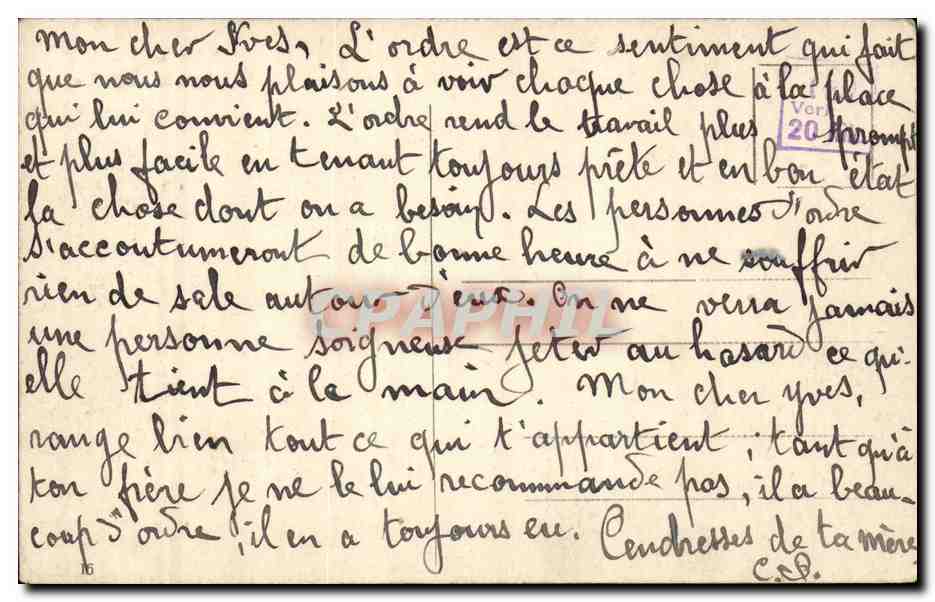 Mon cher Yves, L'ordre est ce sentiment qui fait
que nous nous plaisons à voir chaque chose à la place
qui lui convient. L'ordre rend le travail plus prompt
et plus facile en tenant toujours prête et en bon état
la chose dont on a besoin. Les personnes d'ordre
s'accoutumeront de bonne heure à ne souffrir
rien de sale autour d'eux. On ne verra jamais
une personne soigneuse jeter au hasard ce qu'
elle tient à la main. Mon cher Yves,
range bien tout ce qui t'appartient ; tant qu'à
ton frère je ne le lui recommande pas, il a beau-
coup d'ordre, il en a toujours eu. Tendresses de ta mère
C.
16
Ver
20
CPAPHIL